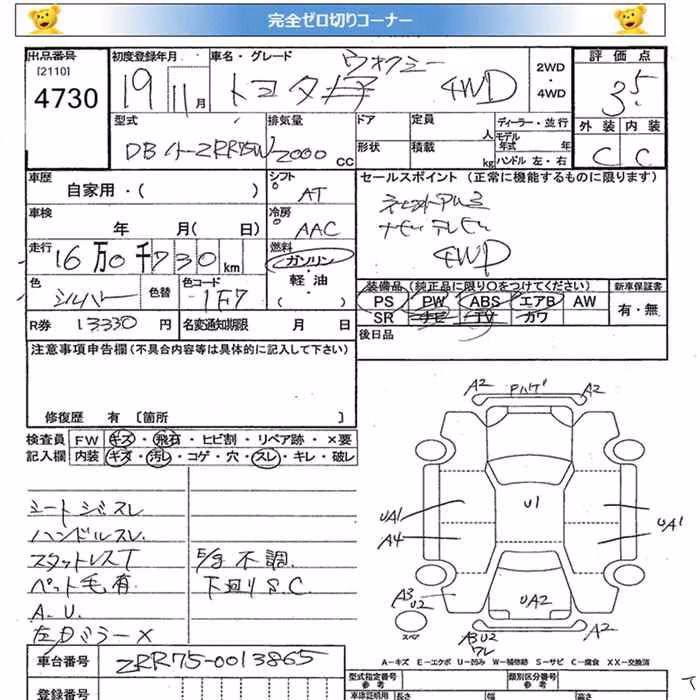 完全ゼロ切りコーナー
出品番号
[2110]
4730
初度登録年月
19 11月
車名・グレード
トヨタ ヴォクシー 4WD
2WD
・
4WD
評価点
3.5
外装 内装
C C
型式
排気量
2000 cc
ドア
定員 人
ディーラー・並行
モデル年式 年
形状
積載 kg
ハンドル 左・右
車歴
自家用・( )
シフト
AT
セールスポイント (正常に機能するものに限ります)
4WD
車検
年 月( 日)
冷房
AAC
走行
16万0千730km
燃料
ガソリン
軽油
・( )
色
シルバー
色替
色コード
1F7
装備品 (純正品に限り○をつけてください)
新車保証書
PS PW ABS エアB AW
有・無
SR ナビ TV カワ
R券 13330円
名変通知期限 月 日
後日品
注意事項申告欄 (不具合内容等は具体的に記入して下さい)
修復歴 有 〔箇所 〕
検査員 FW キズ・飛石・ヒビ割・リペア跡・×要
記入欄 内装 キズ・汚レ・コゲ・穴・スレ・キレ・破レ
シートジミスレ
ハンドルスレ
スタットレスT
ペット毛有
A.U.
左ドミラーX
E/g不調
下廻りS.C.
A2 Pハゲ A2
U1
UA1 UA1
A4
A3 U2
UA2
スペア
A3 U2
ワレ
A2
A-キズ E-エクボ U-凹み W-補修跡 S-サビ C-腐食 XX-交換済
車台番号
ZRR75-0013865
登録番号
型式指定番号
参考
類別区分番号
参考
車庫証明用 長さ 幅 高さ